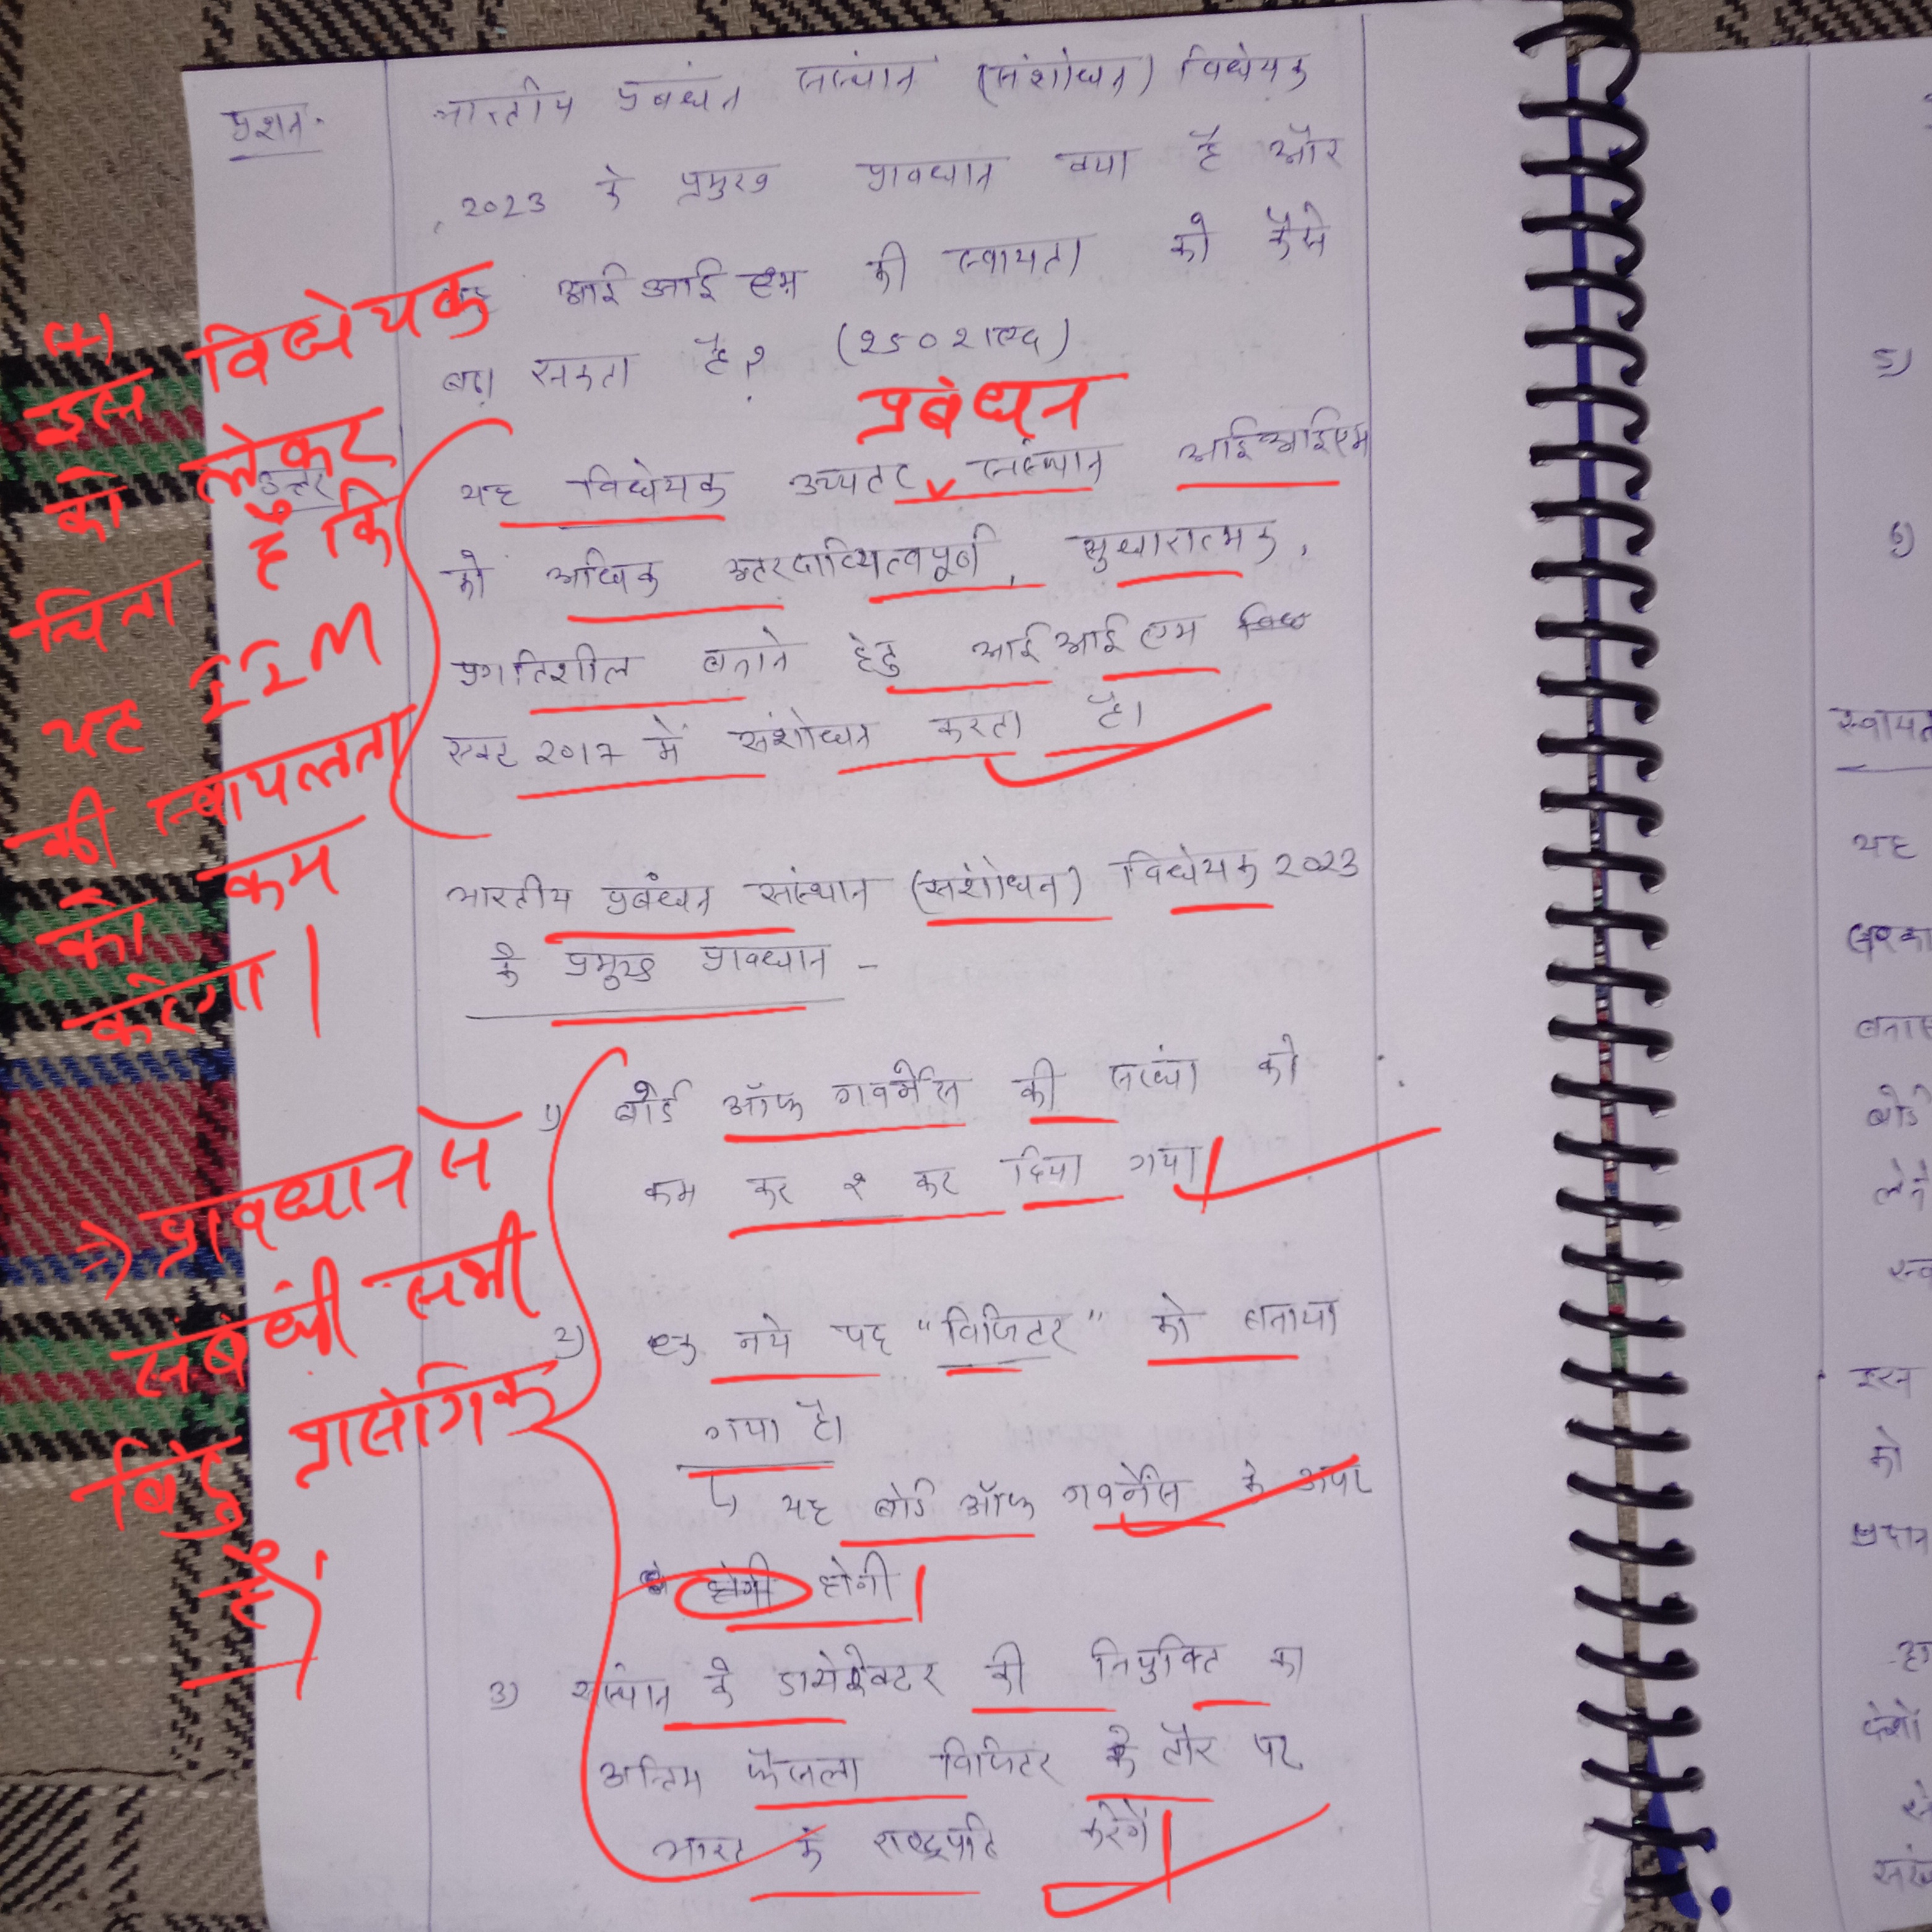 प्रशन. भारतीय प्रबंधन संस्थान (संशोधन) विधेयक
2023 के प्रमुख प्रावधान क्या है और
यह आई आई एम की स्वायता को कैसे
बढ़ा सकता है? (250 शब्द)
प्रबंधन
उत्तर यह विधेयक उच्चतर संस्थान आईआईएम
को अधिक उत्तरदायित्वपूर्ण, सुधारात्मक,
प्रगतिशील बनाने हेतु आई आई एम
एक्ट 2017 में संशोधन करता है।
(+)
इस विधेयक
को लेकर
चिंता है कि
यह IIM
की स्वायत्तता
को कम
करेगा।
भारतीय प्रबंधन संस्थान (संशोधन) विधेयक 2023
के प्रमुख प्रावधान -
1) बोर्ड ऑफ गवर्नेंस की को
कम कर १ कर दिया गया।
2) एक नये पद "विजिटर" को बनाया
गया है।
↳ यह बोर्ड ऑफ गवर्नेंस के ऊपर
होगी होगी।
3) संस्थान के डायरेक्टर की नियुक्ति का
अन्तिम फैसला विजिटर के तौर पर
भारत के राष्ट्रपति करेंगे।
→) प्रावधान से
संबंधी सभी
बिंदु प्रासंगिक
हैं।
5)
6)
यह
को